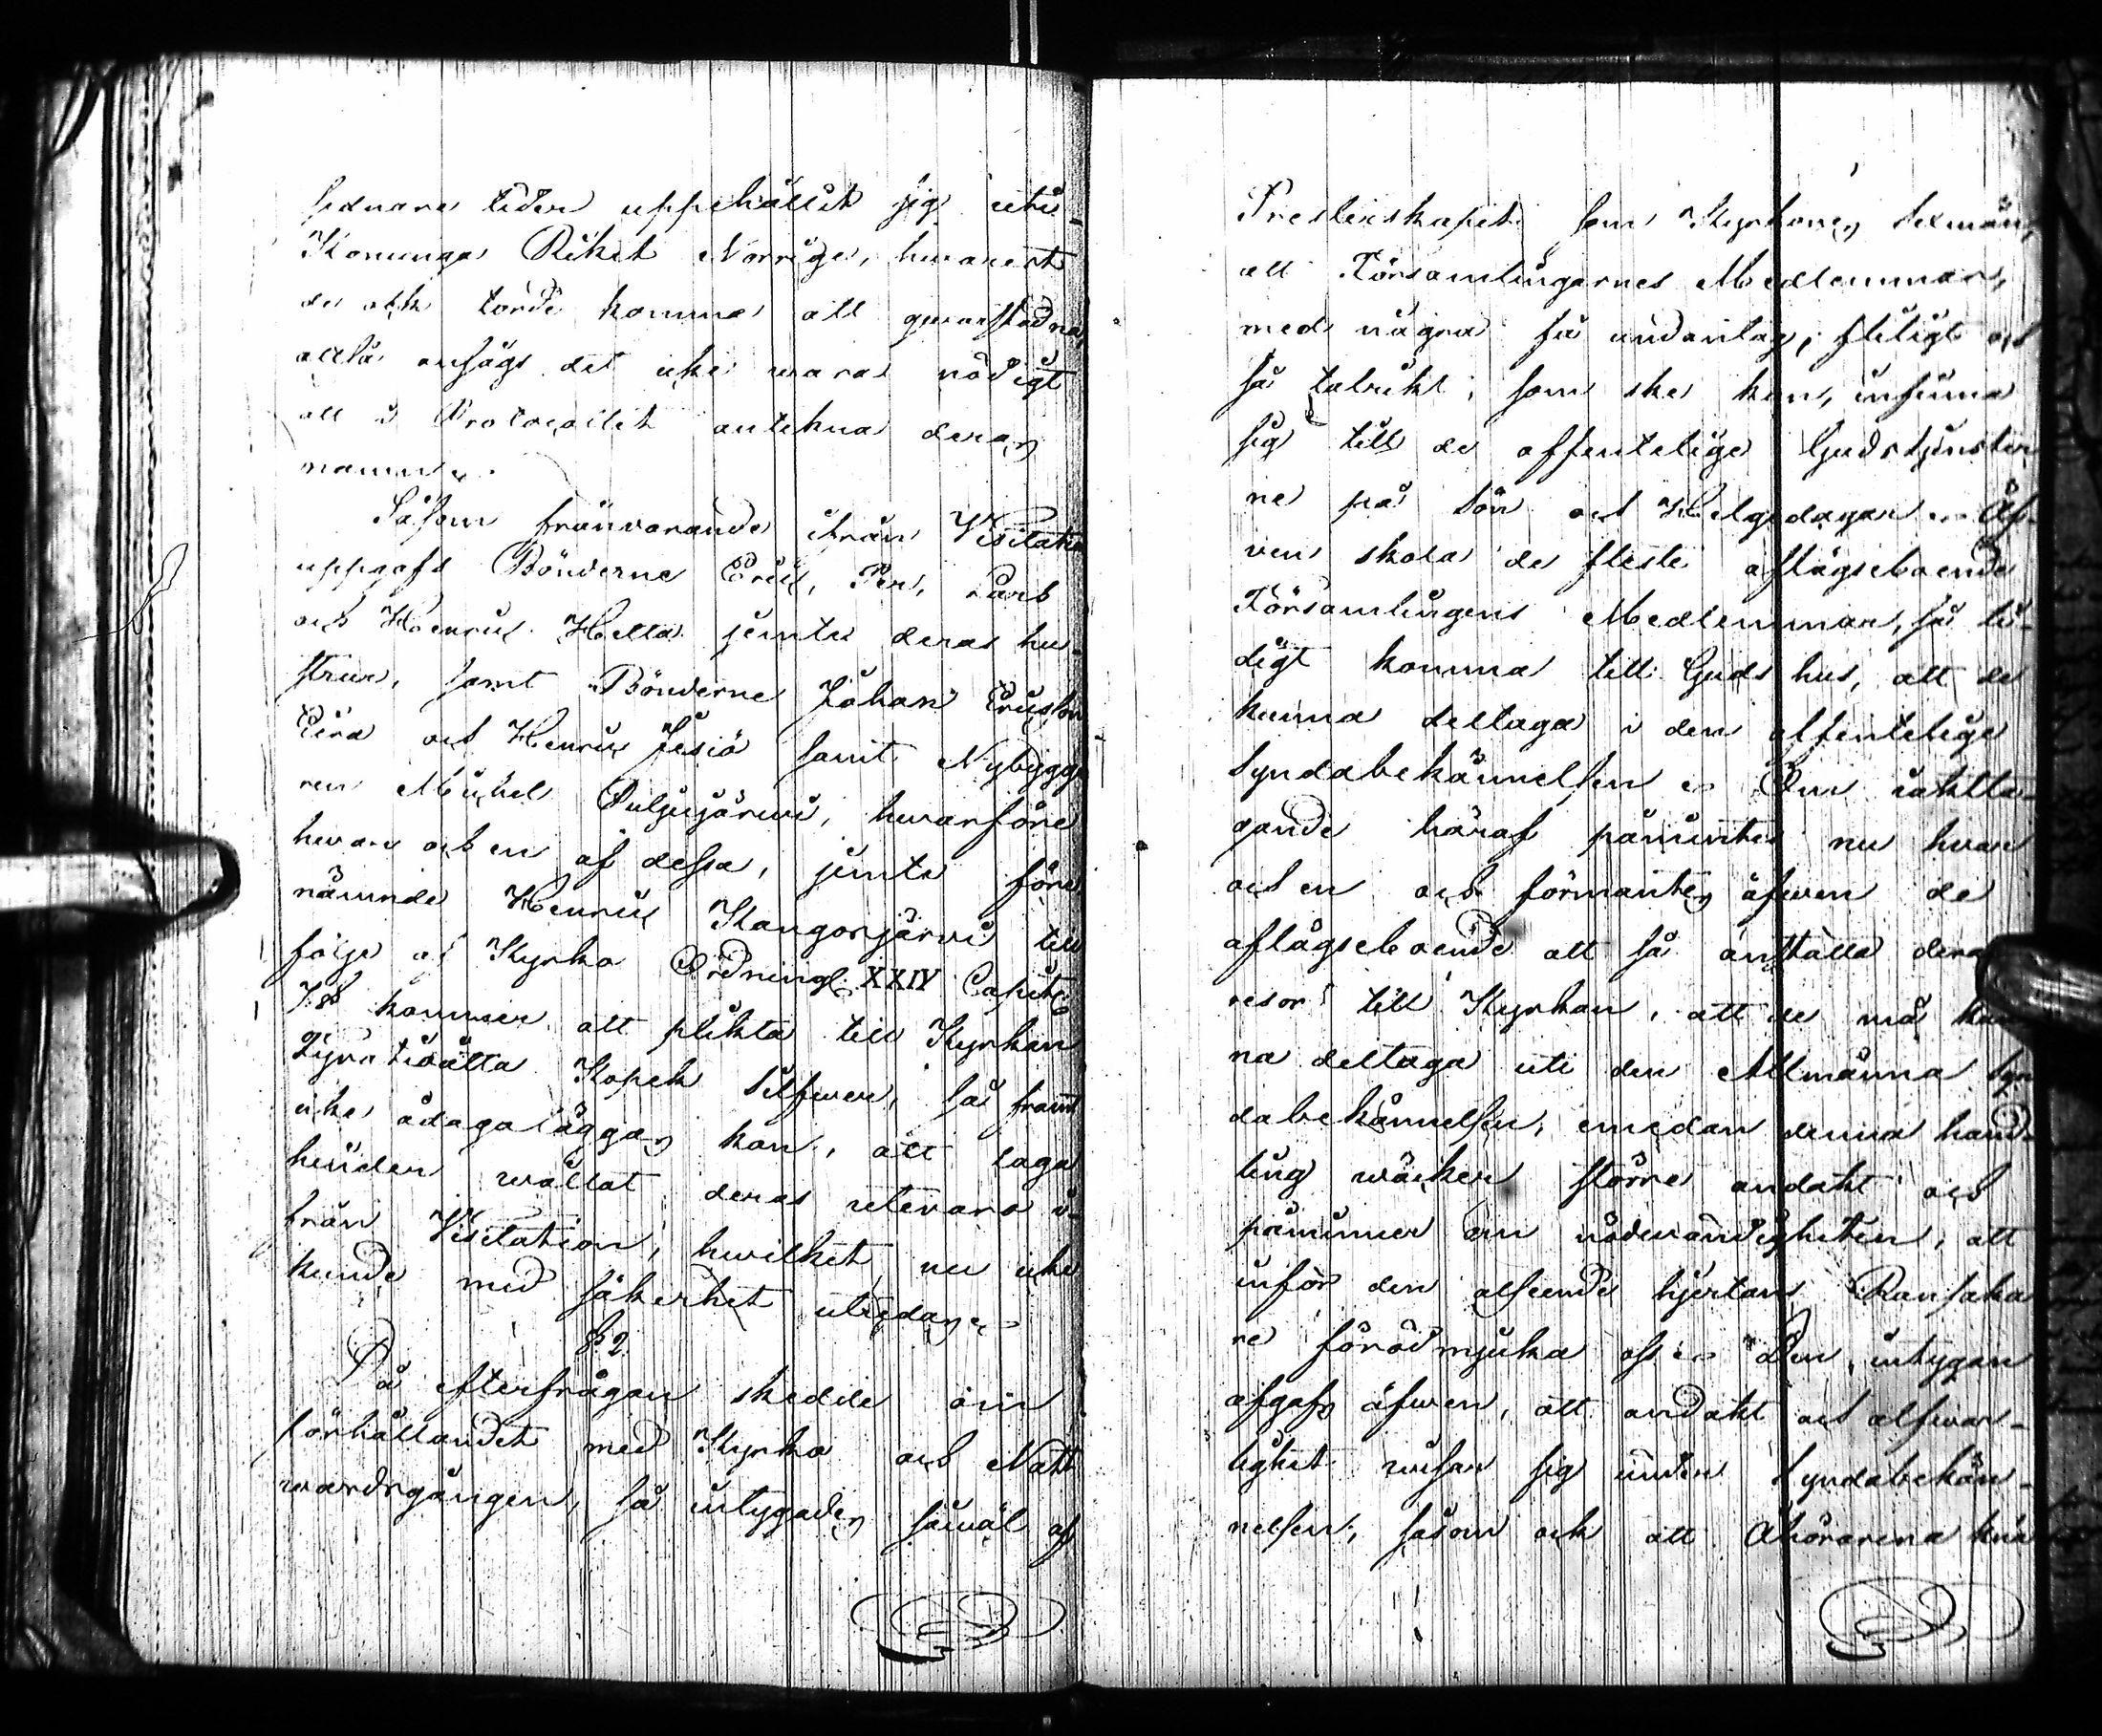 sednare tider uppehållit sig uti
Konunga Riket Norrige, hwarest
de ock torde komma att qwarstadna,
altså ansågs det icke wara nödigt
att i Protocollet antekna deras
namn.
Såsom frånvarande ifrån Visitation
uppgafs Bönderne Eric, Per, Lars
och Henric Hetta jemte deras hu-
strur, samt Bönderne Johan Ericsson
Eira och Henric Jesiö samt Nybygga-
ren Michel Puljujärwi, hwarföre
hwar och en af dessa, jemte före
nämnde Henric Kangosjärwi till
följe af Kyrko Ordning. XXIV Capitl.
7 § kommer att plikta till Kyrkan
Fyratioåtta Kopek Silfwer, så framt
icke ådagaläggas kan, att laga
hinder wållat deras utevaro i-
från Visitation, hwilket nu icke
kunde med säkerhet utredas.
§ 2.
På efterfrågan skedde om
förhållandet med Kyrko och Natt-
wardsgången, så intygades såwäl af
Presterskapet som Kyrkones sexmän,
att Församlingarnes Medlemmar,
med några få undantag, flitigt och
så talrikt, som ske kan, infinna
sig till de offentelige Gudstjenster
ne på Sön och Helgedagar. Äf-
ven skola de fleste aflägseboende
Församlingens Medlemmar, så ti-
digt komma till Guds hus, att de
kunna deltaga i den offentelige
Syndabekännelsen. Om iaktta-
gande häraf påmintes nu hwar
och en och förmantes äfwen de
aflägseboende att så anställa deras
resor till Kyrkan, att de må kun
na deltaga uti den Allmänna Syn
dabekännelsen, emedan denna hand-
ling wäcker större andakt och
påminner om nödwändigheten, att
inför den alseende hjertans Ransaka
re förödmjuka oss. Den intygan
afgafs äfwen, att andakt och alfwar-
lighet wisar sig under Syndabekän-
nelsen, såsom ock att Åhörarena knä